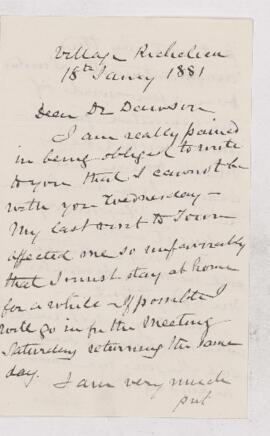 Village Richelieu
18th Jany 1881
Dear Dr Dawson
I am really pained
in being obliged to write
to you that I cannot be
with you Wednesday -
My last visit to Town
affected me so unfavorably
that I must stay at home
for a while - If possible I
will go in for the Meeting
Saturday returning the same
day.
I am very much
put